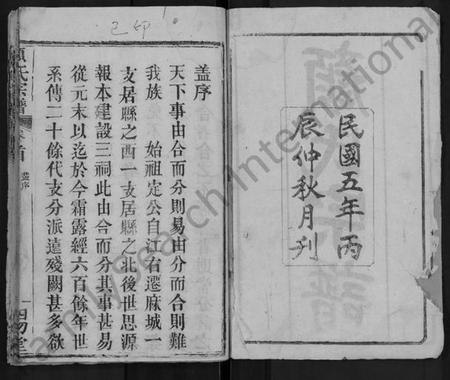 民國五年丙
辰仲秋月刋
已印
盖序
天下事由合而分則易由分而合則難
我族 始祖定公自江右遷麻城一
支居縣之酉一支居縣之北後世思源
報本建設三祠此由合而分其事甚易
從元末以迄於今霜露經六百餘年世
系傳二十餘代支分派遠殘闕甚多欲
氏宗譜
首
盖序
一